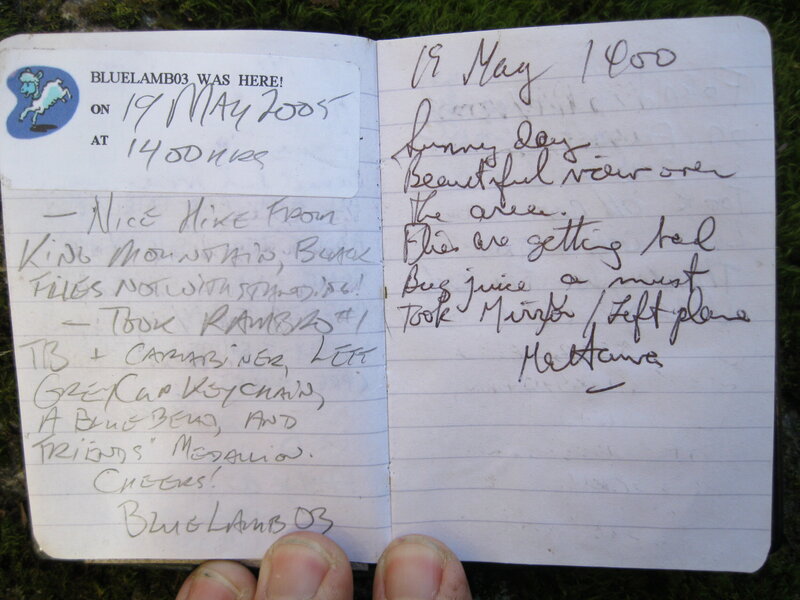 BLUELAMB03 WAS HERE!
ON 19 MAY 2005
AT 1400HRS
- NICE HIKE FROM
KING MOUNTAIN, BLACK
FLIES NOTWITHSTANDING!
- TOOK RAMBRO #1
TB + CARABINER, LEFT
GREY CUP KEYCHAIN,
A BLUE BEAD, AND
"FRIENDS" MEDALLION.
CHEERS!
BLUELAMB03
19 May 1400
Sunny day.
Beautiful view over
the area.
Flies are getting bad
Bug juice a must
Took Mirror / Left plane